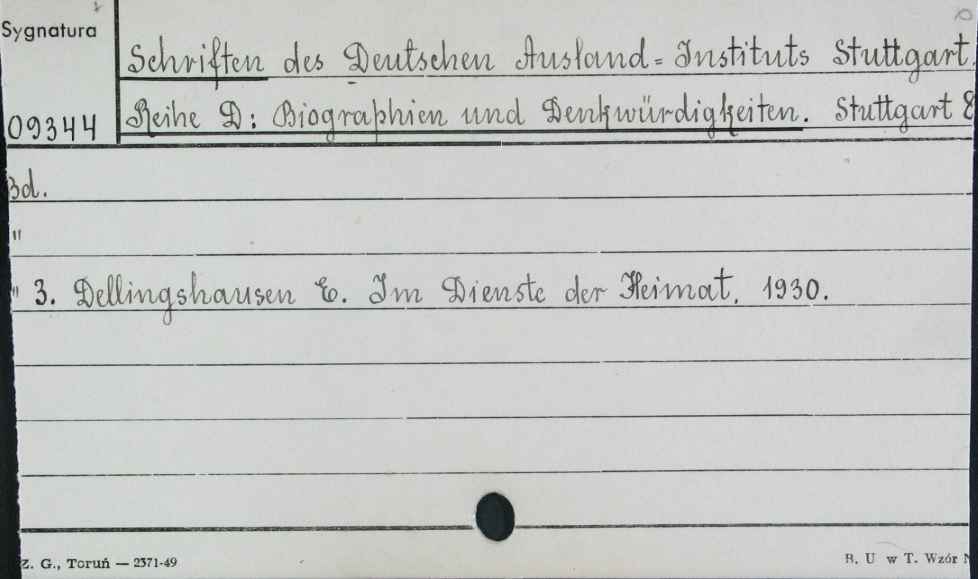 Sygnatura
Schriften des Deutschen Ausland-Instituts Stuttgart.
09344
Reihe D: Biographien und Denkwürdigkeiten. Stuttgart 8
Bd.
"
" 3. Dellingshausen E. Im Dienste der Heimat. 1930.
Z. G., Toruń — 2371-49
B. U w T. Wzór N